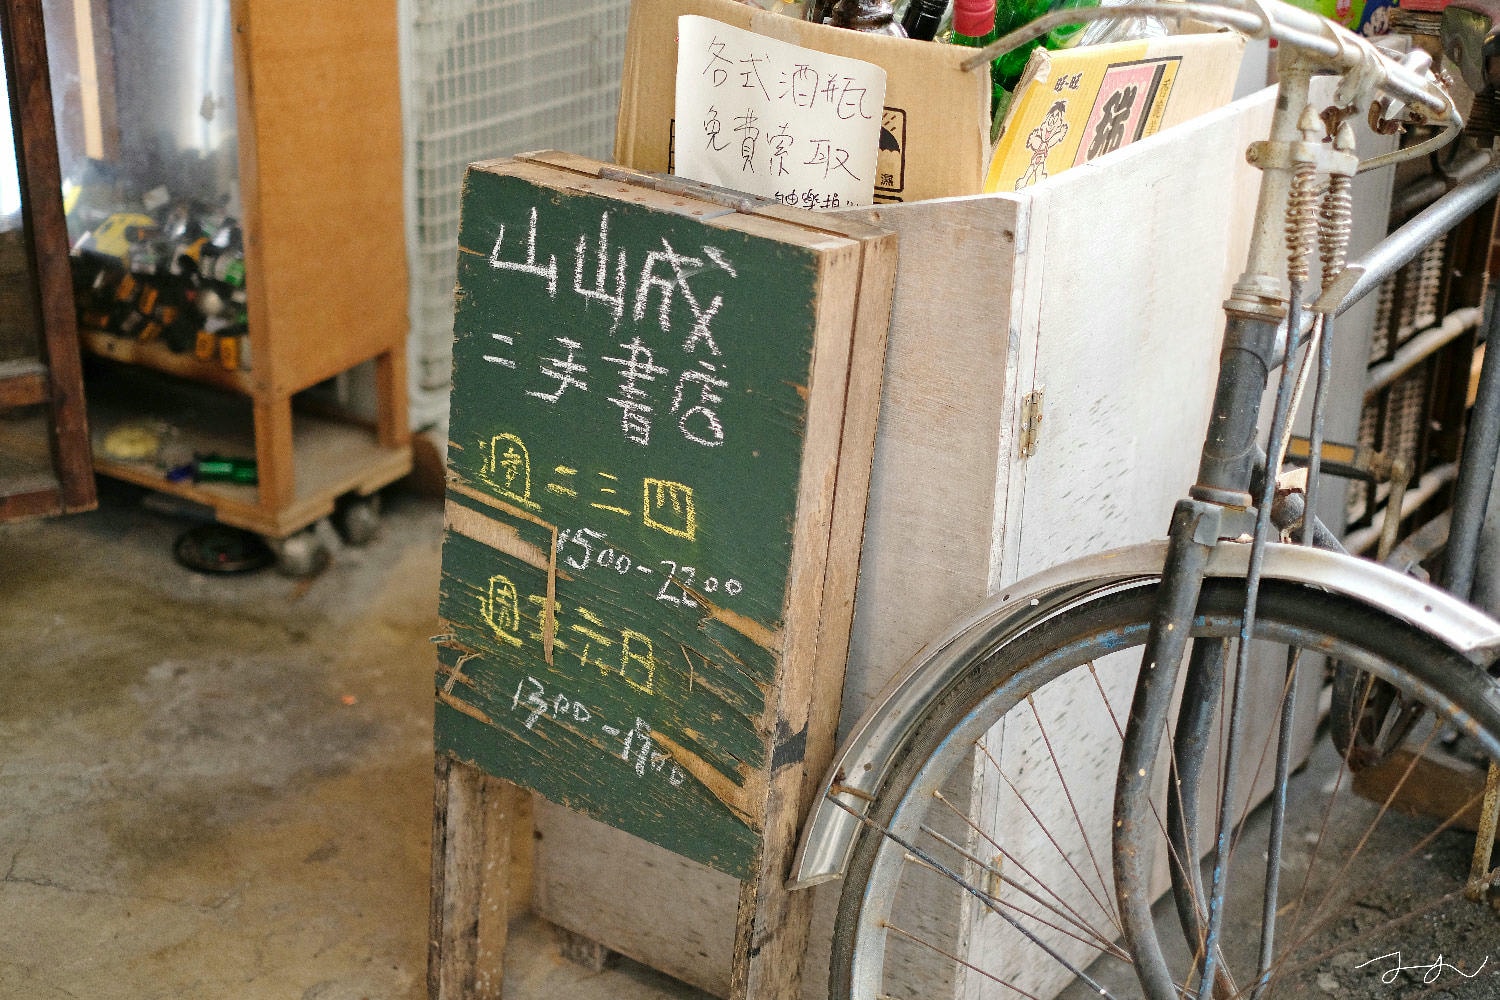 各式酒瓶
免費索取
自由樂捐
旺旺
濕
山山成
二手書店
週二三四
1500-2200
週五六日
1300-1900